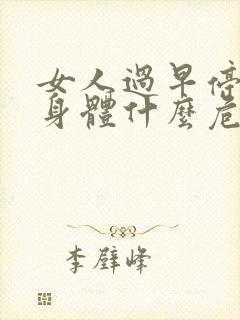 女人過早停
身體什麼危
李壁峰